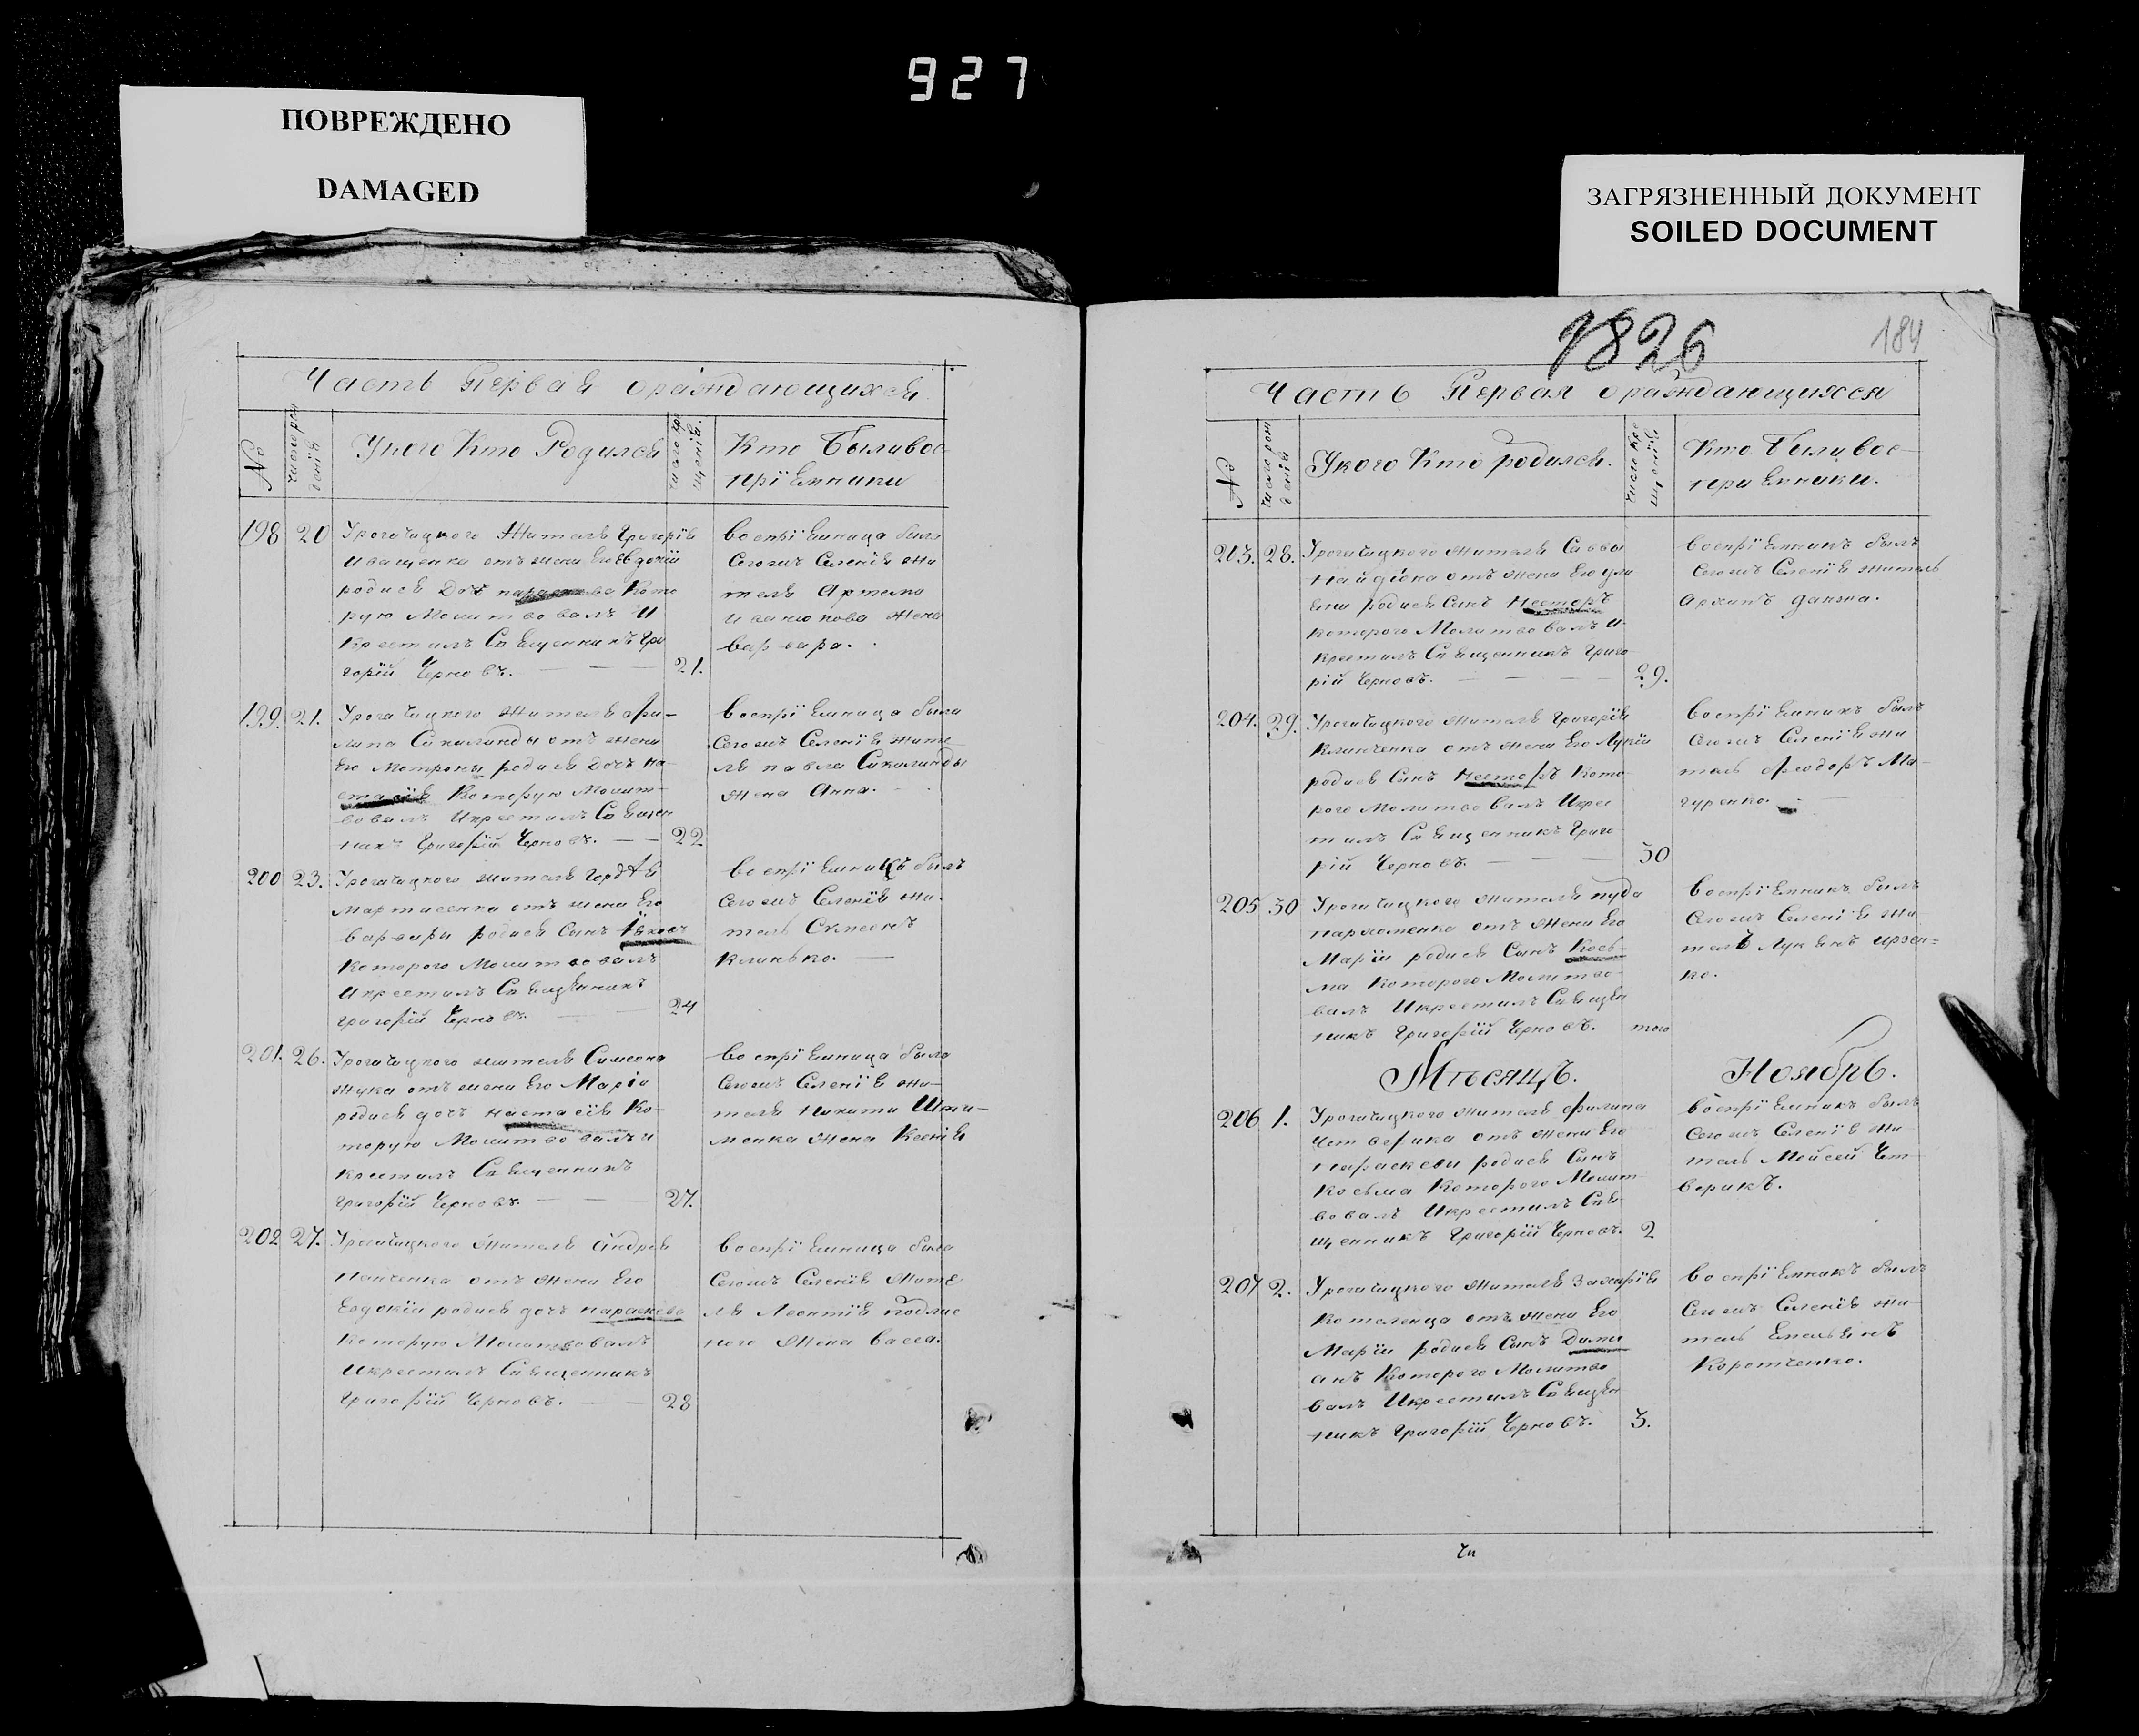 927
ПОВРЕЖДЕНО
DAMAGED
ЗАГРЯЗНЕННЫЙ ДОКУМЕНТ
SOILED DOCUMENT
Часть Первая о раждающихся
№
число рож
денія
У кого Кто Родился
число кре
щенія.
Кто Были вос
пріемники
198
20
Урогачицкого Жителя Григорія
Иващенка отъ жени Его Евдокіи
родися Дочъ параскева Кото
рую Молитвовалъ И
Крестилъ Священникъ Гри
горій Черновъ.
21.
воспріемница была
Сегожъ Селенія жи
теля Артема
жена
варвара.
199.
21.
Урогачицкого жителя фи-
липа Сикалинды отъ жени
Его Мотроны родися Дочъ на-
стасія Которую Молит-
вовалъ Икрестилъ Священ
никъ Григорій Черновъ.
22
воспріемница была
Сегожъ Селенія жите
ля павла Сикалинды
жена Анна.
200
23.
Урогачицкого жителя Гордѣя
Мартисенка отъ жени Его
варвари родися Синъ Іяковъ
Которого Молитвовалъ
Икрестилъ Священникъ
Григорій Черновъ.
24
воспріемникъ былъ
Сегожъ Селенія жи-
тель Симеонъ
Клинько.
201.
26.
Урогачицкого жителя Симеона
Жука отъ жени Его Маріи
родися дочъ настасія Ко-
торую Молитвовалъ и
Крестилъ Священникъ
Григорій Черновъ.
27.
воспріемница была
Сегожъ Селенія жи-
теля Никити
жена Ксенія
202
27.
Урогачицкого Жителя Андрея
Панченка отъ жени Его
Евдокіи родися дочъ параскева
Которую Молитвовалъ
Икрестилъ Священникъ
Григорій Черновъ.
28
воспріемница была
Сегожъ Селенія жите
ля Леонтія подлис
ного Жена васса.
1826
184
Часть Первая о раждающихся
№
число рож
денія
У кого Кто родился.
число кре
щенія
Кто Были вос-
приемники.
203.
28.
Урогачицкого жителя Саввы
Найдіона отъ жени Его ули
яни родися Синъ Несторъ
которого Молитвовалъ и
крестилъ Священникъ Григо
рій Черновъ.
29.
воспріемникъ былъ
Сегожъ Селенія житель
Архипъ
204.
29.
Урогачицкого жителя Григорія
Клинченка отъ жени Его Лукіи
родися Синъ Несторъ Кото
рого Молитвовалъ Икрес
тилъ Священникъ Григо
рій Черновъ.
30
воспріемникъ былъ
Сегожъ Селенія жи
тель Феодоръ Ма-
гуренко.
205
30
Урогачицкого жителя пуда
пархоменка отъ жени Его
Маріи родися Синъ Кось-
ма Которого Молитво
валъ Икрестилъ Священ
никъ Григорій Черновъ.
того
воспріемникъ былъ
Сегожъ Селенія жи
тель Лукянъ
ко.
Мѣсяцъ.
Ноябрь.
206
1.
Урогачицкого жителя филипа
Четверика отъ жени Его
параскеви родися Синъ
Косьма Которого Молит
вовалъ Икрестилъ Свя
щенникъ Григорій Черновъ.
2
воспріемникъ былъ
Сегожъ Селенія жи
тель Мойсей Чет
верикъ.
207
2.
Урогачицкого жителя Захарія
Котеленца отъ жени Его
Маріи родися Синъ Дами
анъ Которого Молитво
валъ Икрестилъ Священ
никъ Григорій Черновъ.
3.
воспріемникъ былъ
Сегожъ Селенія жи
тель Емельянъ
Коротченко.